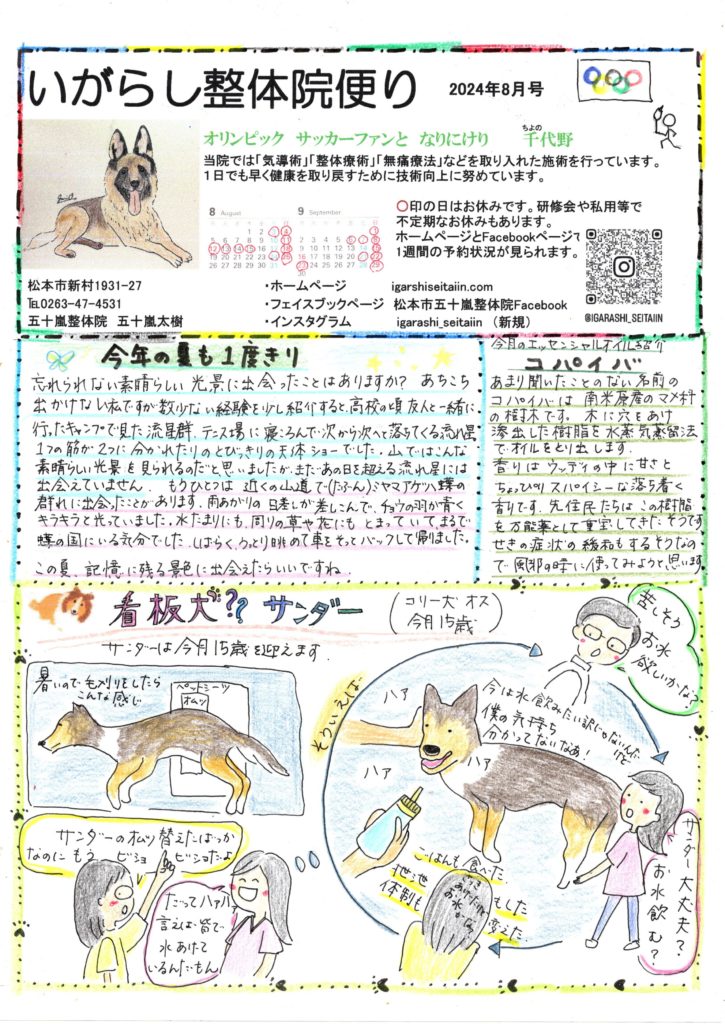 いがらし整体院便り 2024年8月号
オリンピック サッカーファンと なりにけり 千代野
ちよの
当院では「気導術」「整体療術」「無痛療法」などを取り入れた施術を行っています。
1日でも早く健康を取り戻すために技術向上に努めています。
8 August
9 September
〇印の日はお休みです。研修会や私用等で
不定期なお休みもあります。
ホームページとFacebookページで
1週間の予約状況が見られます。
@IGARASHI_SEITAIIN
松本市新村1931-27
℡0263-47-4531
五十嵐整体院 五十嵐太樹
・ホームページ igarshiseitaiin.com
・フェイスブックページ 松本市五十嵐整体院Facebook
・インスタグラム igarashi_seitaiin (新規)
今年の夏も1度きり
忘れられない素晴らしい光景に出会ったことはありますか? あちこち
出かけない私ですが数少ない経験を少し紹介すると、高校の頃友人と一緒に
行ったキャンプで見た流星群。テニス場に寝ころんで次から次へと落ちてくる流れ星
1つの筋が2つに分かれたりのとびっきりの天体ショーでした。山ではこんな
素晴らしい光景を見られるのだと思いましたが、まだあの日を超える流れ星には
出会えていません。もうひとつは近くの山道で(たぶん)ミヤマアゲハ蝶の
群れに出会ったことがあります。雨あがりの日差しが差しこんで、チョウの羽が青く
キラキラと光っていました。水たまりにも、周りの草や花にもとまっていてまるで
蝶の国にいる気分でした。しばらくうっとり眺めて車をそっとバックして帰りました。
この夏、記憶に残る景色に出会えたらいいですね。
今月のエッセンシャルオイル紹介
コパイバ
あまり聞いたことのない名前の
コパイバは南米原産のマメ科
の樹木です。木に穴をあけ
滲出した樹脂を水蒸気蒸留法
でオイルをとり出します。
香りはウッディの中に甘さと
ちょっぴりスパイシーな落ち着く
香りです。先住民たちはこの樹脂
を万能薬として重宝してきたそうです
せきの症状の緩和もするそうなの
で風邪の時に使ってみようと思います
看板犬?? サンダー
(コリー犬 オス
今月15歳)
サンダーは今月15歳を迎えます
暑いので毛刈りをしたら
こんな感じ
ペットシーツ
オムツ
サンダーのオムツ替えたばっか
なのにもうビショビショだよ
だってハァハァ
言えば皆で
水あけて
いるんだもん
そういえば
苦しそう
お水
欲しいかな?
今は水飲みたい訳じゃないんだけど
僕の気持ち
分かってないなあ!
ハァ
ハァ
ハァ
サンダー大丈夫?
お水飲む?
ごはんも食べた
排泄もした
体制も変えた
さっき
あげたけど
お水かな